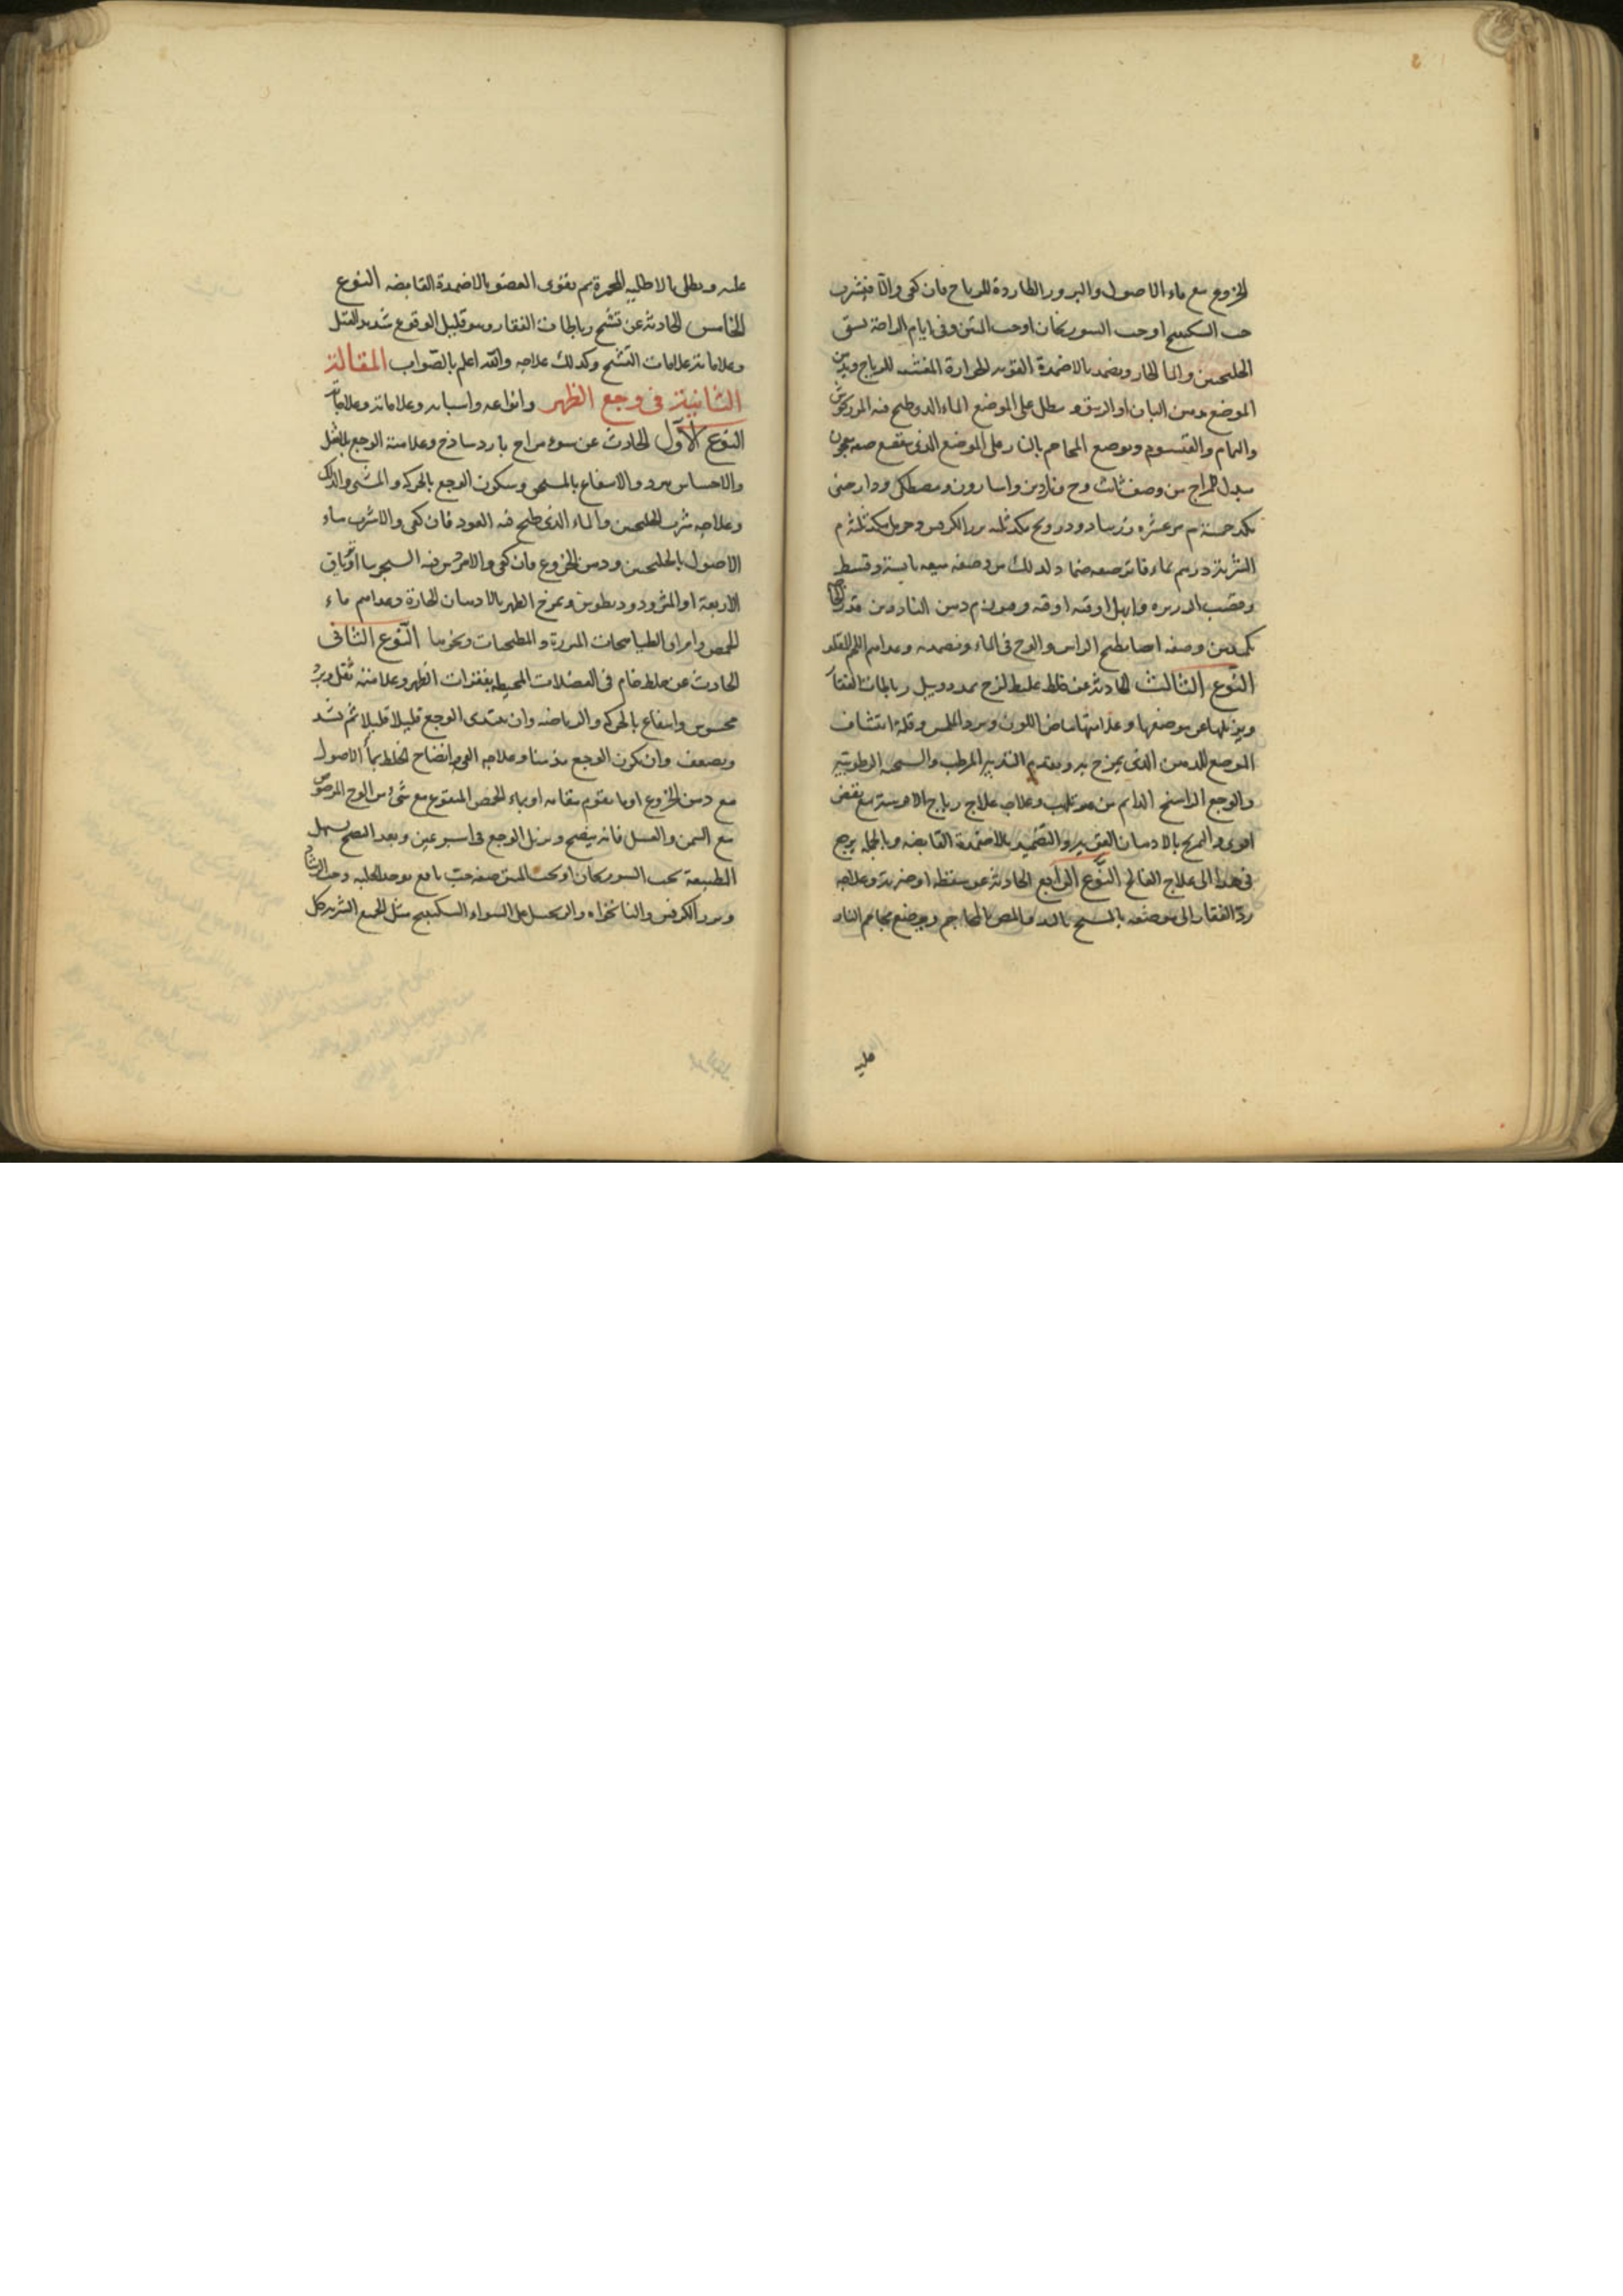 الخروع مع ماء الاصول والبزور الطاردة للرياح فان كفى والا فيشرب
حب السكبينج او حب السورنجان او حب المنتن وفى ايام الراحة يسقى
الجلنجبين والماء الحار ويضمد بالاضمدة القوية الحرارة المفشية للرياح ويدهن
الموضع بدهن البان او الزيبق و ينطل على الموضع الماء الذى طبخ فيه المرزنجوش
والنمام والقيسوم ويوضع المحاجم بالنار على الموضع الذى يتقصع صفة معجون
يبدل المزاج من وصف ثابت وج وناردين واسارون ومصطكى ودارصينى
بزر الكرفس
الشربة درهم بماء فاتر صفة ضماد لذلك من وصفه ميعة يابسة وقسط
وقصب الذريرة وابهل اوقية اوقية دهن الناردين قدر
وصفة ايضا يطبخ الراسن والوج فى الماء ويضمد به وغذاءهم
النوع الثالث الحادثة عن خلط غليظ لزج يمدد ويبل رباطات الفقار
ويزيلها عن موضعها وعلامتها بياض اللون وبرد الملمس وقلة انتشاف
الموضع للدهن الذى يمرخ به وتقدم التدبير المرطب والسحنة الرطوبية
والوجع الراسخ الدائم من غير تلهب وعلاجه علاج رياح الافرسة مع نفض
اقوى والتمريخ بالادهان القوية والتضميد بالاضمدة القابضة وبالجملة يرجع
فى هذا الى علاج الفالج النوع الرابع الحادثة عن سقطة او ضربة وعلاجه
رد الفقار الى موضعه بالمسح باليد والمص بالمحاجم ويوضع محاجم النار
عليه
عليه ويطلى بالاطلية المحمرة ثم يقوى العضو بالاضمدة القابضة النوع
الخامس الحادثة عن تشنج رباطات الفقار وهو قليل الوقوع شديد القتل
وعلاماته علامات التشنج وكذلك علاجه والله اعلم بالصواب المقالة
الثانية فى وجع الظهر وانواعه واسبابه وعلاماته وعلاجاته
النوع الاول الحادث عن سوء مزاج بارد ساذج وعلامته الوجع بلا ثقل
والاحساس ببرد والانتفاع بالمسخن وسكون الوجع بالحركة والمشى والدلك
وعلاجه شرب الجلنجبين والماء الذى طبخ فيه العود فان كفى والا شرب ماء
الاصول بالجلنجبين ودهن الخروع فان كفى والا مرس فيه السجزنيا او ترياق
الاربعة او المثروديطوس ويمرخ الظهر بالادهان الحارة وغذاءهم ماء
الحمص وامراق الطياهجات المبزرة والمطجنات ونحوها النوع الثانى
الحادث عن خلط خام فى العضلات المحيطة بفقرات الظهر وعلامته ثقل وبرد
محسوس وانتفاع بالحركة والرياضة وان يبتدى الوجع قليلا قليلا ثم يشتد
ويصعب وان يكون الوجع مزمنا وعلاجه القوى انضاج الخلط بماء الاصول
مع دهن الخروع او ما يقوم مقامه او بماء الحمص المنقوع مع شئ من الوج المرضوض
مع السمن والعسل فانه ينضج ويزيل الوجع فى اسبوعين وبعد النضج يسهل
الطبيعة بحب السورنجان او بحب المنتن صفة حب نافع يوخذ الحلبة وحب الرشاد
وبزر الكرفس والنانخواه والزنجبيل على السواء السكبينج مثل الجميع الشربة كل